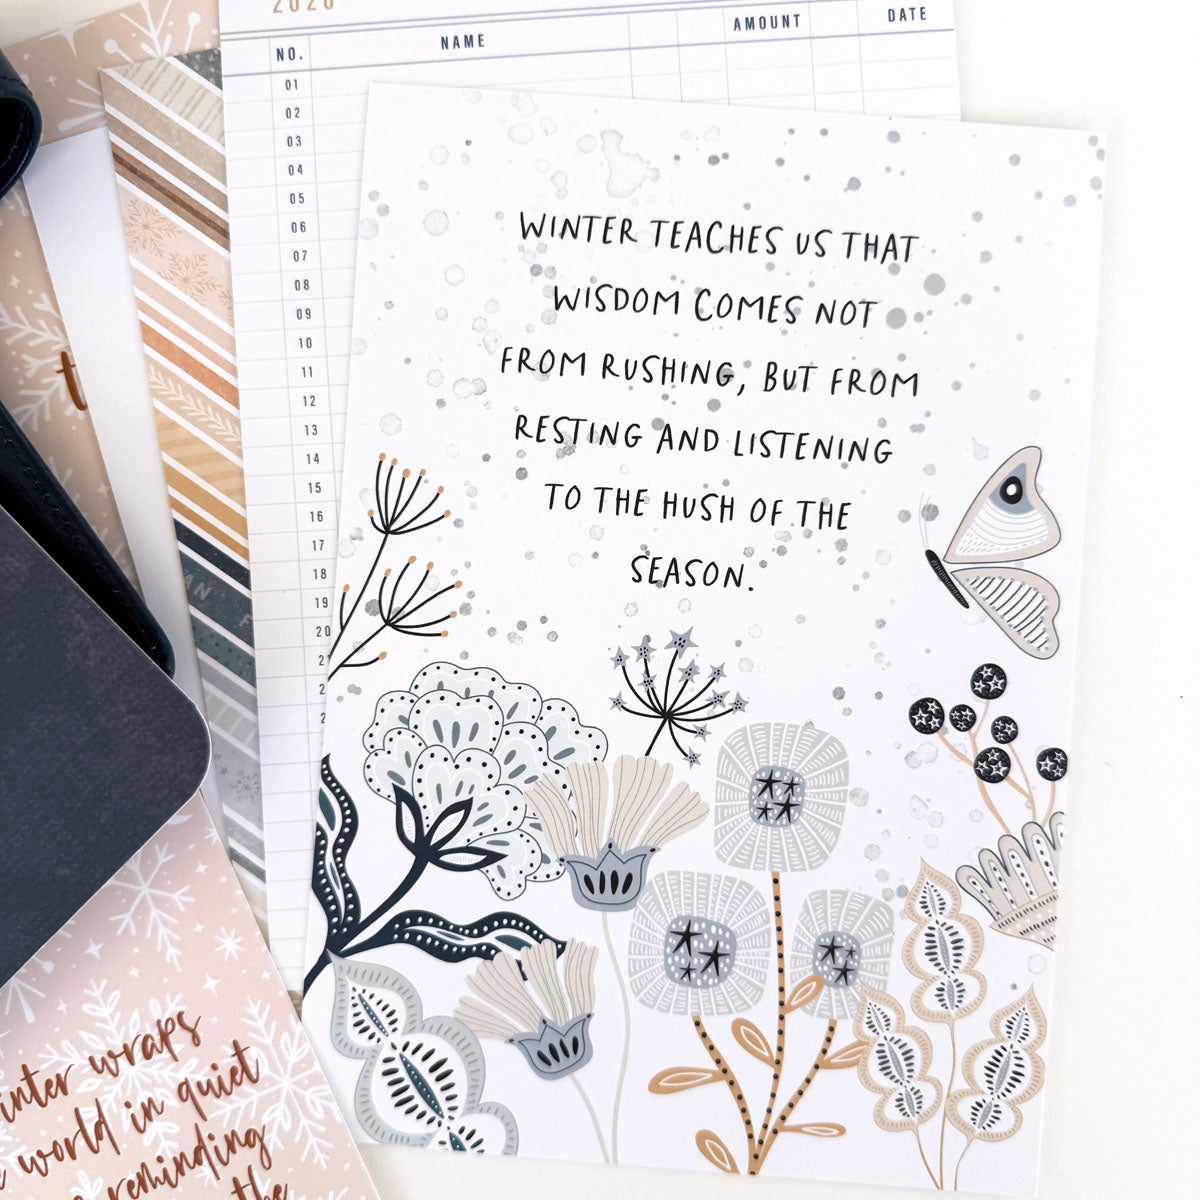 2026
NO. NAME AMOUNT DATE
01
02
03
04
05
06
07
08
09
10
11
12
13
14
15
16
17
18
19
20
WINTER TEACHES US THAT
WISDOM COMES NOT
FROM RUSHING, BUT FROM
RESTING AND LISTENING
TO THE HUSH OF THE
SEASON.
t
AN F
inter wraps
world in quiet
reminding
the